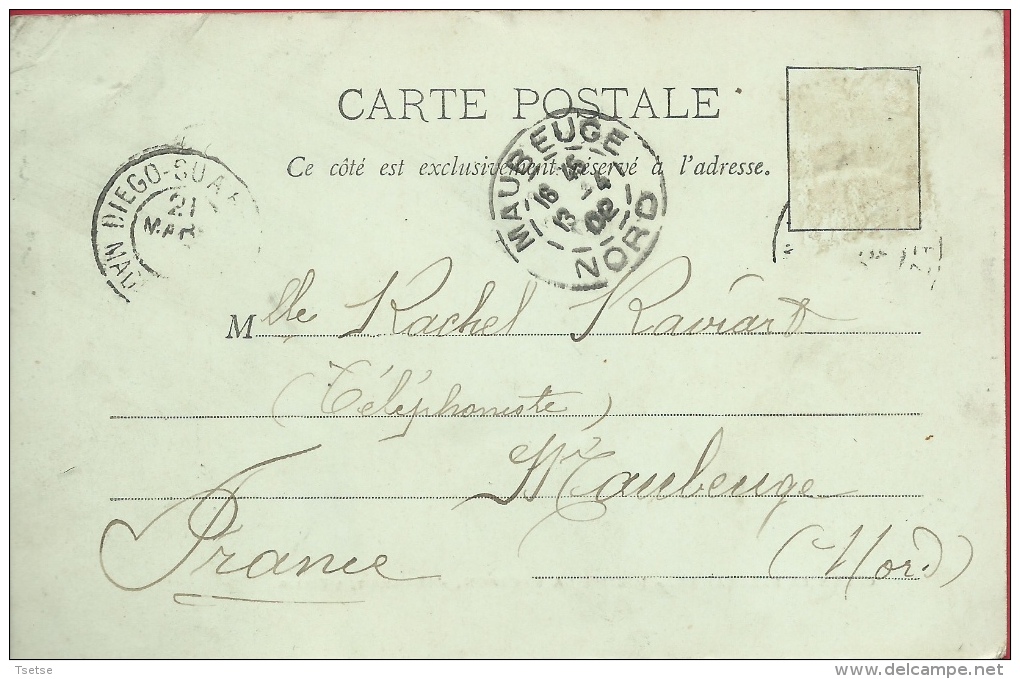 CARTE POSTALE
Ce côté est exclusivement réservé à l'adresse.
MAUBEUGE
16 45
13 4
02
NORD
DIEGO-SUA
21
MAR
Mlle Rachel Raviart
(Téléphoniste)
Maubeuge
(Nord)
France
Tsetse
www.delcampe.net